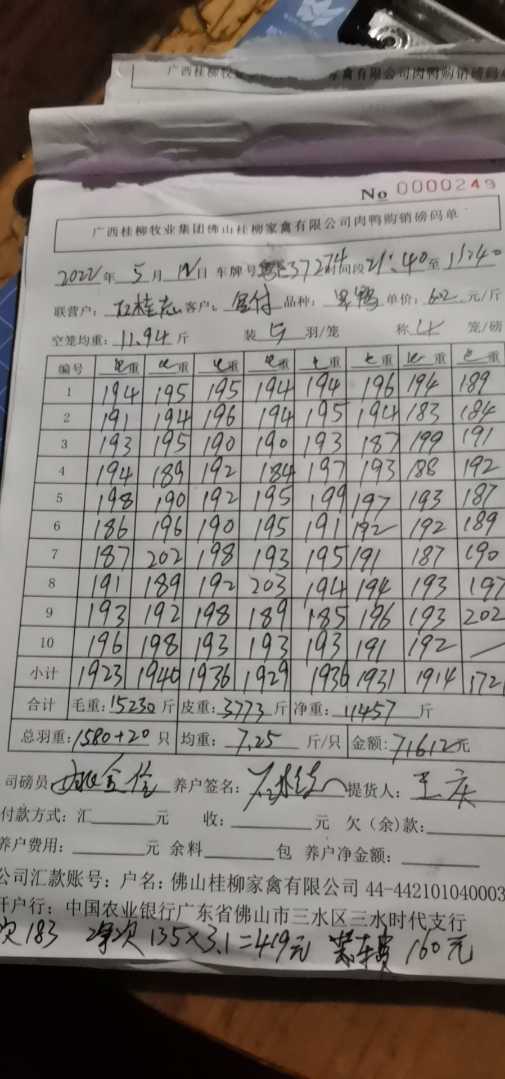 广西桂柳牧 禽有限公司肉鸭购销磅码
No 0000249
广西桂柳牧业集团佛山桂柳家禽有限公司肉鸭购销磅码单
2022年 5月 日 车牌号 37274 时间段 21:40 至
联营户: 客户: 品种: 单价: 元/斤
空笼均重: 11.94 斤 装 羽/笼 称 笼/磅
编号 重 重 重 重 重 重 重 重
1 194 195 195 194 194 196 194 189
2 191 194 196 194 195 194 183 184
3 193 195 190 190 193 187 199 191
4 194 189 192 184 197 193 188 192
5 198 190 192 195 199 197 193 187
6 186 196 190 195 191 192 192 189
7 187 202 198 193 195 191 187 190
8 191 189 192 203 194 194 193 197
9 193 192 198 189 185 196 193 202
10 196 198 193 193 193 191 192 —
小计 1923 1940 1936 1929 1936 1931 1914 1721
合计 毛重: 15230 斤 皮重: 3773 斤 净重: 11457 斤
总羽重: 1580+20 只 均重: 7.25 斤/只 金额: 71612 元
司磅员 养户签名: 提货人: 王庆
付款方式: 汇 元 收: 元 欠(余)款:
养户费用: 元 余料 包 养户净金额:
公司汇款账号: 户名: 佛山桂柳家禽有限公司 44-442101040003
开户行: 中国农业银行广东省佛山市三水区三水时代支行
183 次 135×3.1=419元 装车费 160元